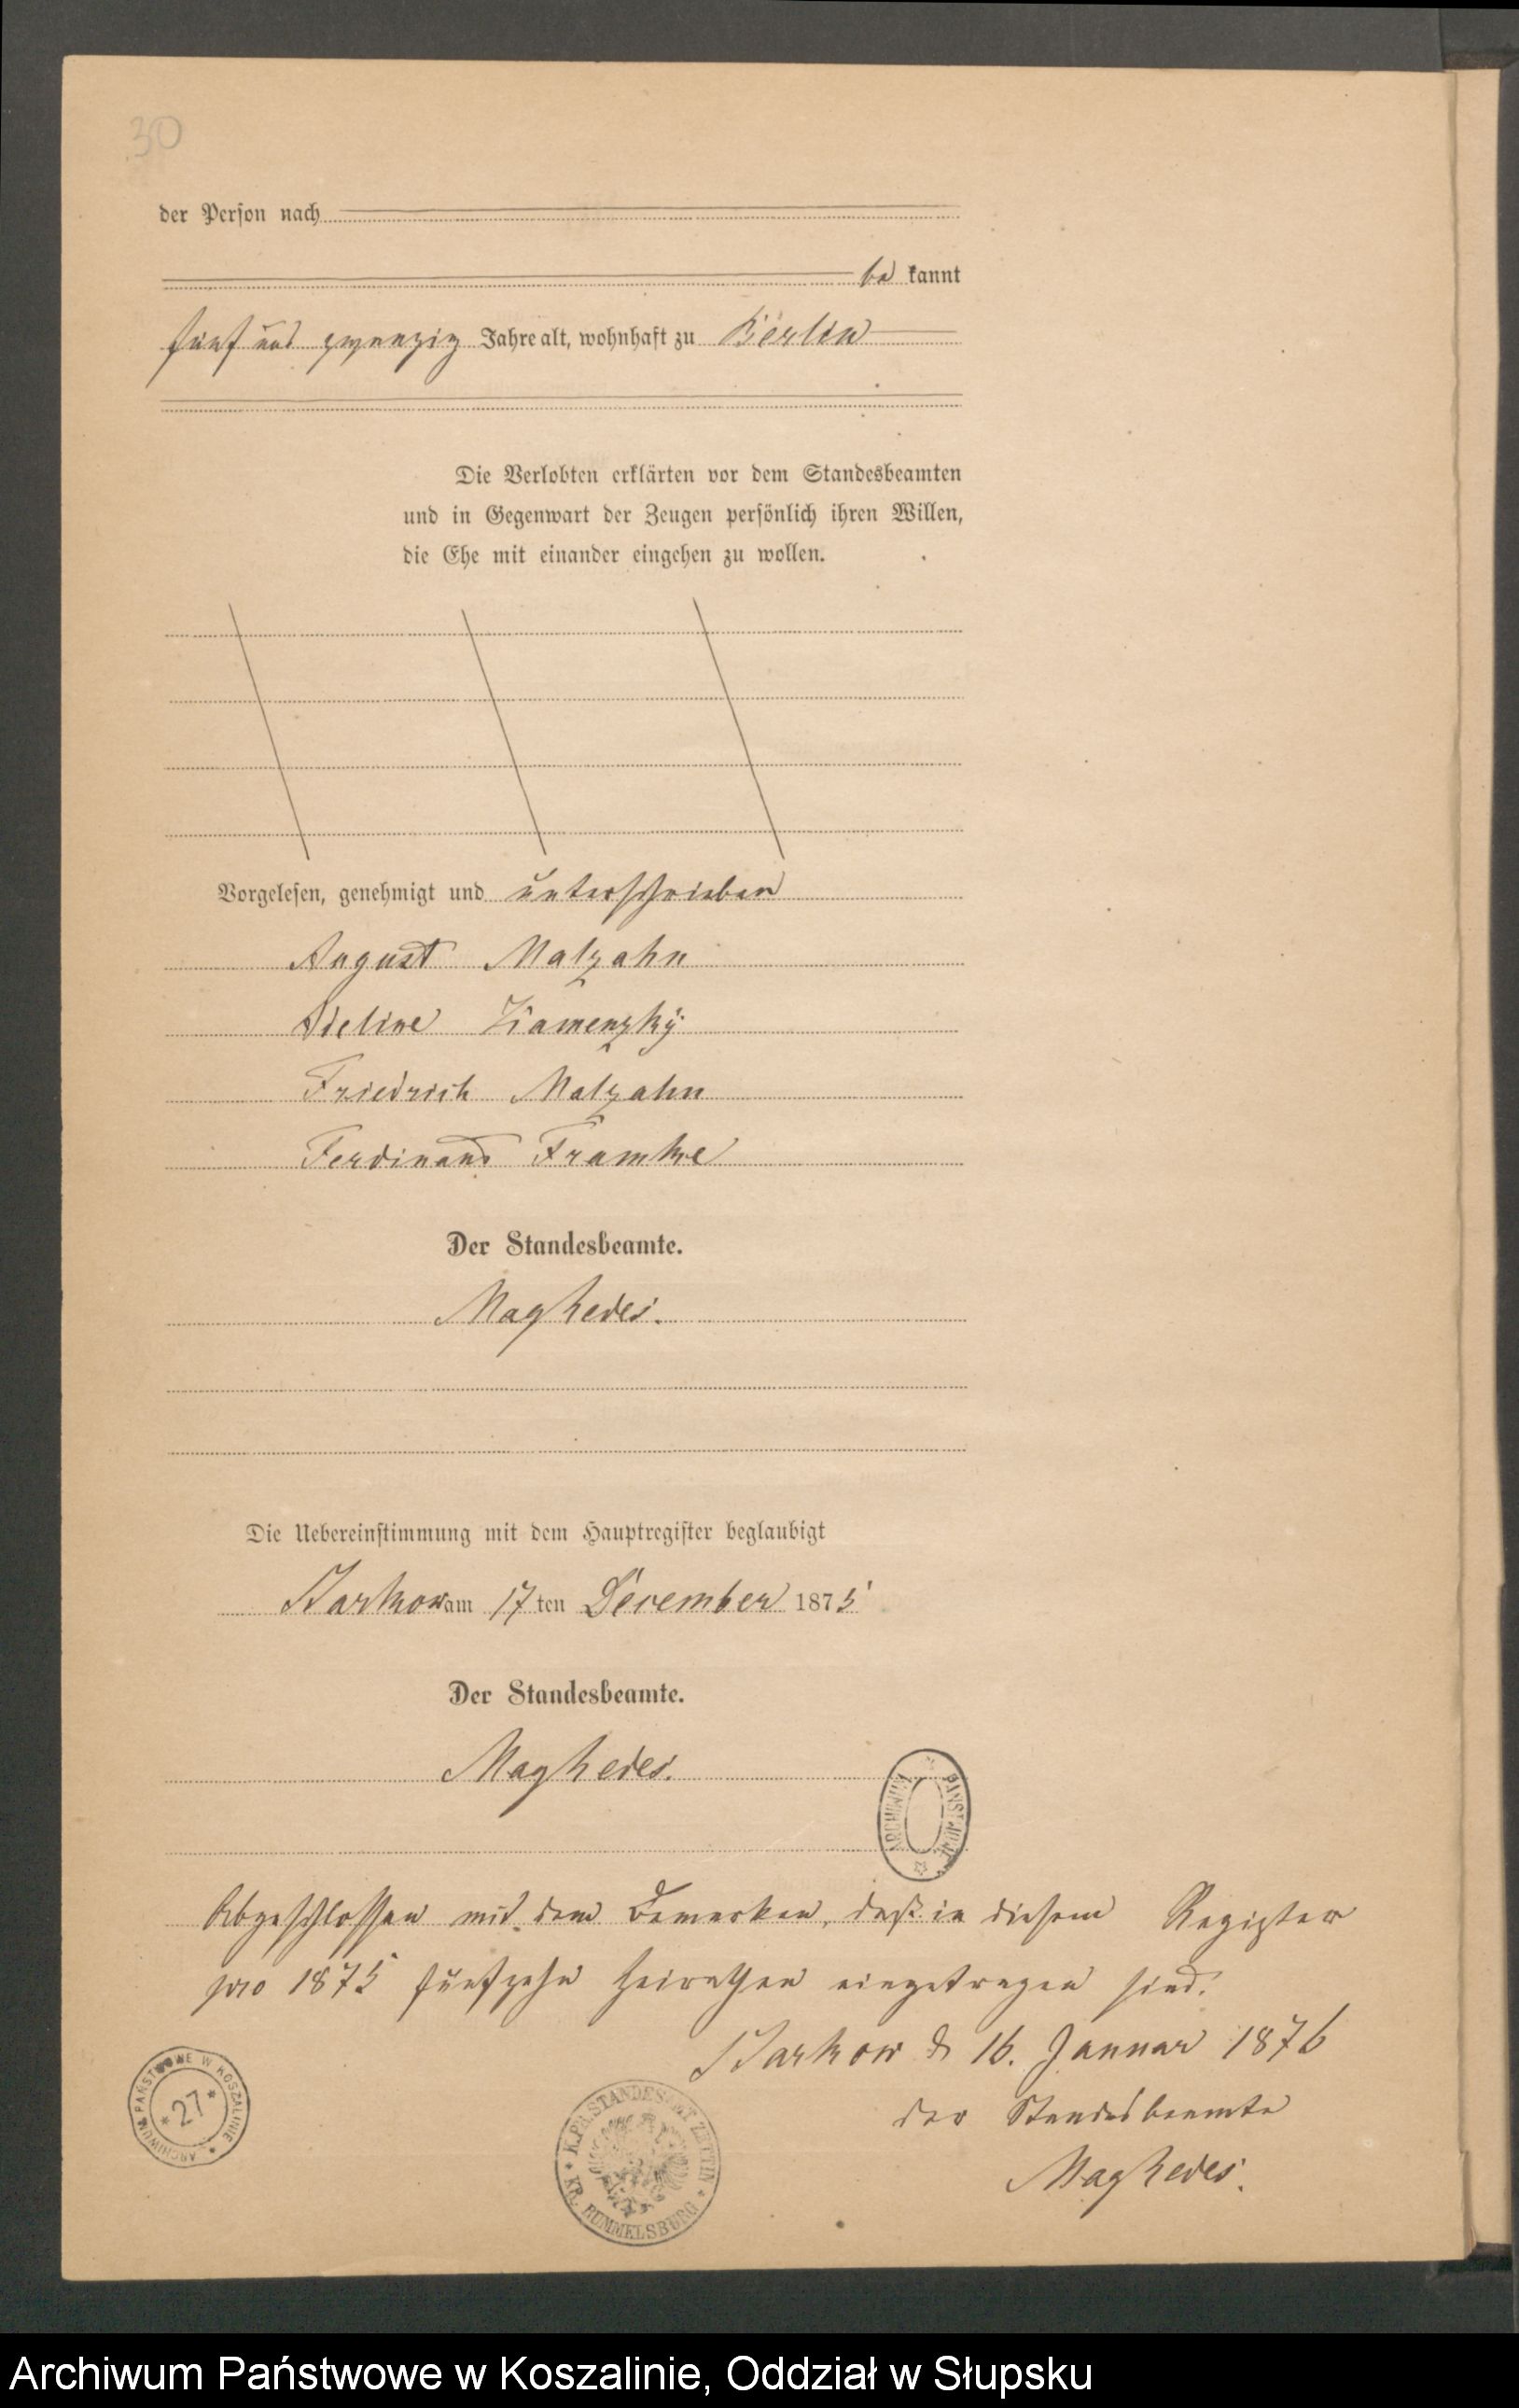 30
der Person nach
be kannt
fünf und zwanzig Jahre alt, wohnhaft zu Berlin
Die Verlobten erklärten vor dem Standesbeamten
und in Gegenwart der Zeugen persönlich ihren Willen,
die Ehe mit einander eingehen zu wollen.
Vorgelesen, genehmigt und unterschrieben
August Malzahn
Adeline
Friedrich Malzahn
Ferdinand Framke
Der Standesbeamte.
Die Uebereinstimmung mit dem Hauptregister beglaubigt
am 17ten December 1875
Der Standesbeamte.
ARCHIWUM
Abgeschlossen mit dem Bemerken, daß in diesem Register
pro 1875 fünfzehn Heirathen eingetragen sind.
16. Januar 1876
der Standesbeamte
ARCHIWUM PAŃSTWOWE W KOSZALINIE
*27*
K.PR.STANDESAMT ZETTIN
KR. RUMMELSBURG
Archiwum Państwowe w Koszalinie, Oddział w Słupsku